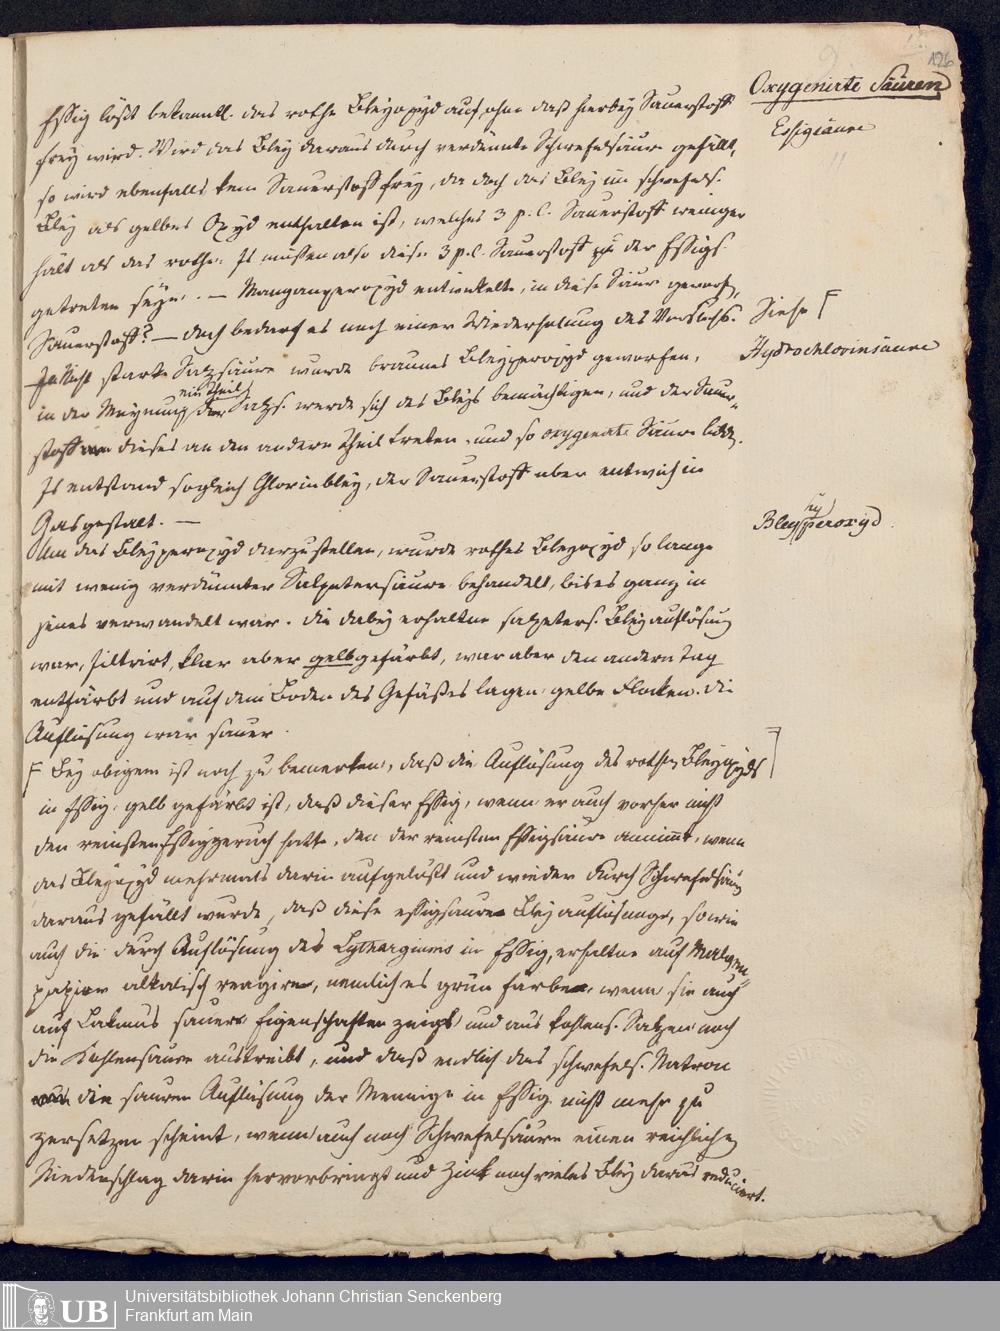 126
Oxygenirte Säuren
Essigsäure
Essig löst bekanntl. das rothe Bleyoxyd auf, ohne daß hierbey Sauerstoff
frey wird. Wird das Bley daraus durch verdünnte Schwefelsäure gefällt,
so wird ebenfalls kein Sauerstoff frey, da doch das Bley im schwefels.
Bley als gelbes Oxyd enthalten ist, welches 3 p. C. Sauerstoff weniger
hält als das rothe. Es müssen also diese 3 p.C. Sauerstoff zu der Essigs.
getreten seyn. — Manganperoxyd entwickelte, in diese Säure geworfen,
Sauerstoff? — doch bedarf es noch einer Wiederholung des Versuchs.
Siehe F
Hydrochlorinsäure
In starke Salzsäure wurde braunes Bleyperoxyd geworfen,
in der Meynung, ein Theil der Salzs. werde sich des Bleys bemächtigen, und der Sauer-
stoff dieses an den andern Theil treten, und so oxygenirte Säure bilden.
Es entstand sogleich Chlorinbley, der Sauerstoff aber entwich in
Gasgestalt. —
Bleyhyperoxyd.
Um das Bleyperoxyd darzustellen, wurde rothes Bleyoxyd so lange
mit wenig verdünnter Salpetersäure behandelt, bis es ganz in
jenes verwandelt war. Die dabey erhaltne salpeters. Bleyauflösung
war, filtrirt, klar aber gelbgefärbt, war aber den andern Tag
entfärbt und auf dem Boden des Gefäßes lagen gelbe Flocken. Die
Auflösung war sauer.
F Bey obigem ist noch zu bemerken, daß die Auflösung des rothen Bleyoxyds
in Essig gelb gefärbt ist, daß dieser Essig, wenn er auch vorher nicht
den reinsten Essiggeruch hatte, den der reinsten Essigsäure annimmt, wenn
das Bleyoxyd mehrmals darin aufgelöst und wieder durch Schwefelsäure
daraus gefällt wurde, daß diese essigsaure Bleyauflösung, so wie
auch die durch Auflösung des Lythargiums in Essig, erhaltne auf Malven-
papier alkalisch reagiren, nemlich es grün färben, wenn sie auch
auf Lakmus saure Eigenschaften zeigt und aus kohlens. Salzen noch
die Kohlensäure austreibt, und daß endlich das schwefels. Natron
die sauren Auflösung der Mennige in Essig nicht mehr zu
zersetzen scheint, wenn auch noch Schwefelsäure einen reichlichen
Niederschlag darin hervorbringt und Zink noch vieles Bley daraus reducirt.
UB
Universitätsbibliothek Johann Christian Senckenberg
Frankfurt am Main